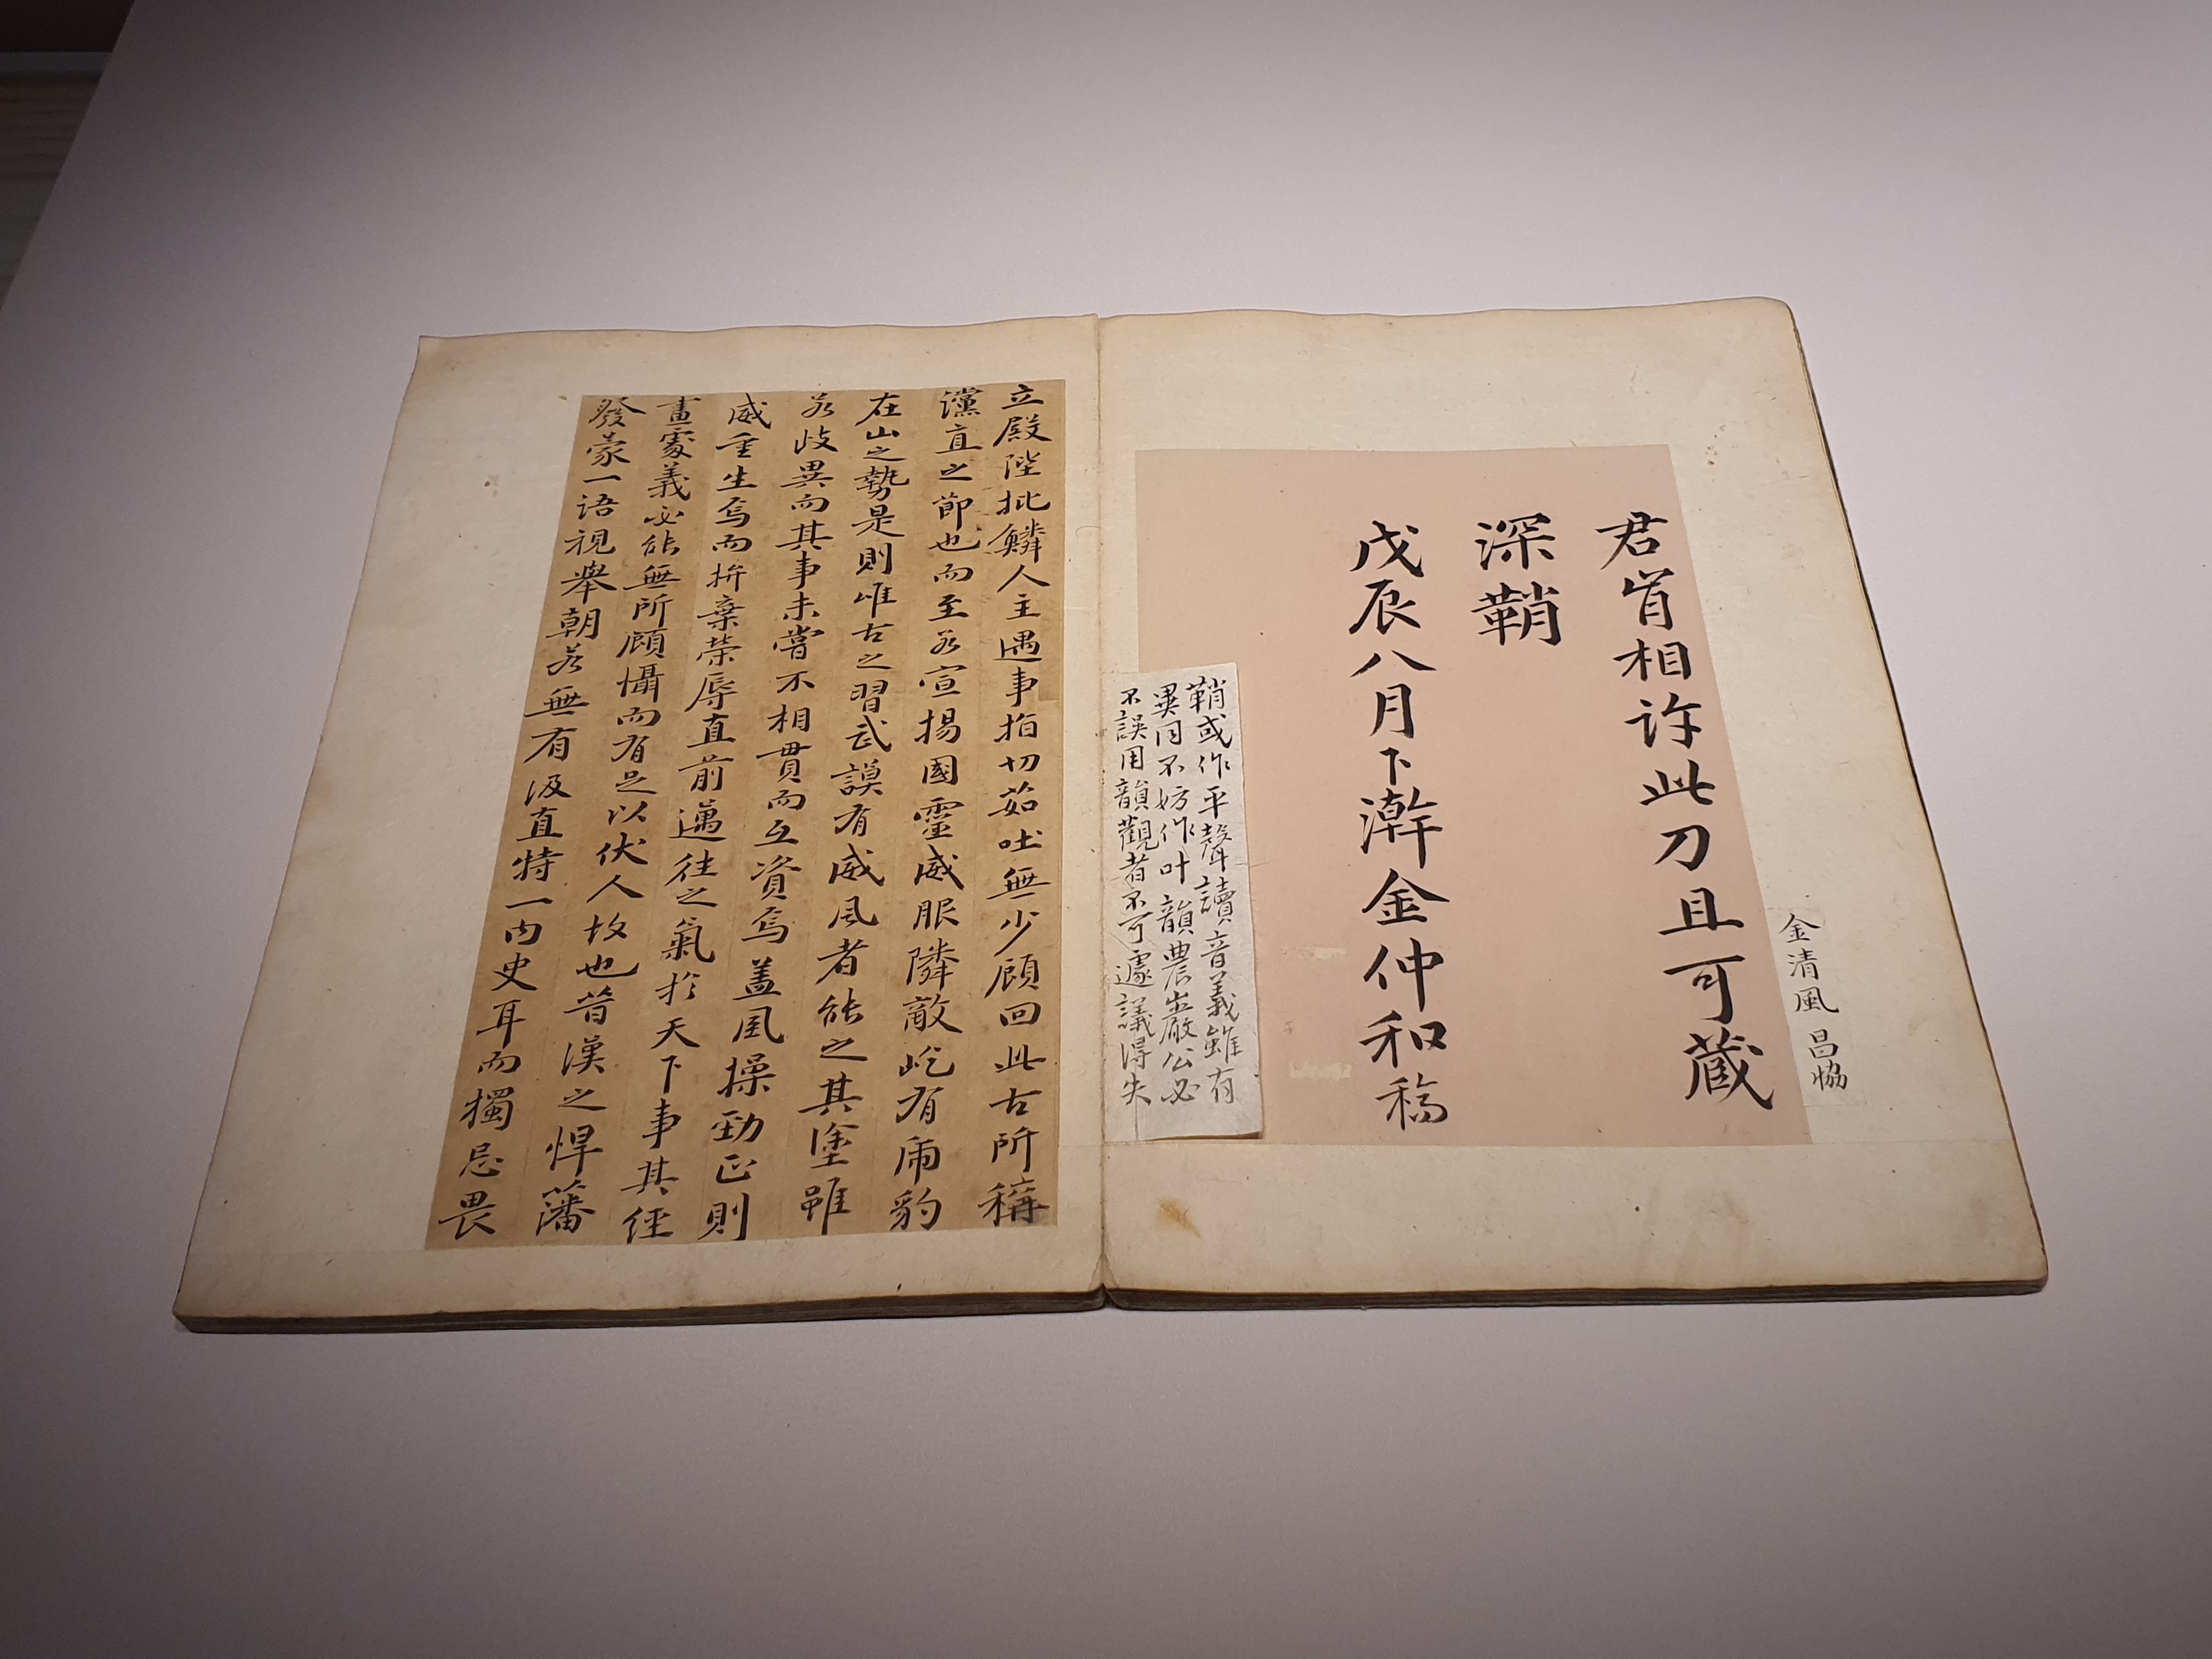 金清風 昌協
君省相許此刀且可蔵
深鞘
戊辰八月下澣金仲和稿
鞘或作平聲讀音義雖有
異同不妨作叶韻農巖公必
不誤用韻觀者不可遽議得失
立殿陛批鱗人主遇事指切茹吐無少顧回此古所稱
讜直之節也而至若宣揚國靈威服隣敵屹有甫豹
在山之勢是則唯古之習武謨有威風者能之其塗雖
若歧異而其事未嘗不相貫而互資焉盖風操勁正則
威重生焉而拚棄榮辱直前邁往之氣扵天下事其經
畫處義必能無所顧懾而有足以伏人故也昔漢之悍藩
發蒙一语視舉朝若無有汲直特一内史耳而獨忌畏